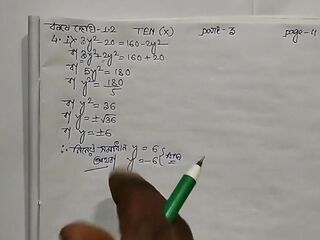 TEN (X) part-3 page-4
4. ix 3y²-20=160-2y²
বা 3y²+2y²=160+20
বা 5y²=180
বা y²=180/5
বা y²=36
বা y=±√36
বা y=±6
∴ নির্ণেয় সমাধান y=6
অথবা y=-6 (Ans